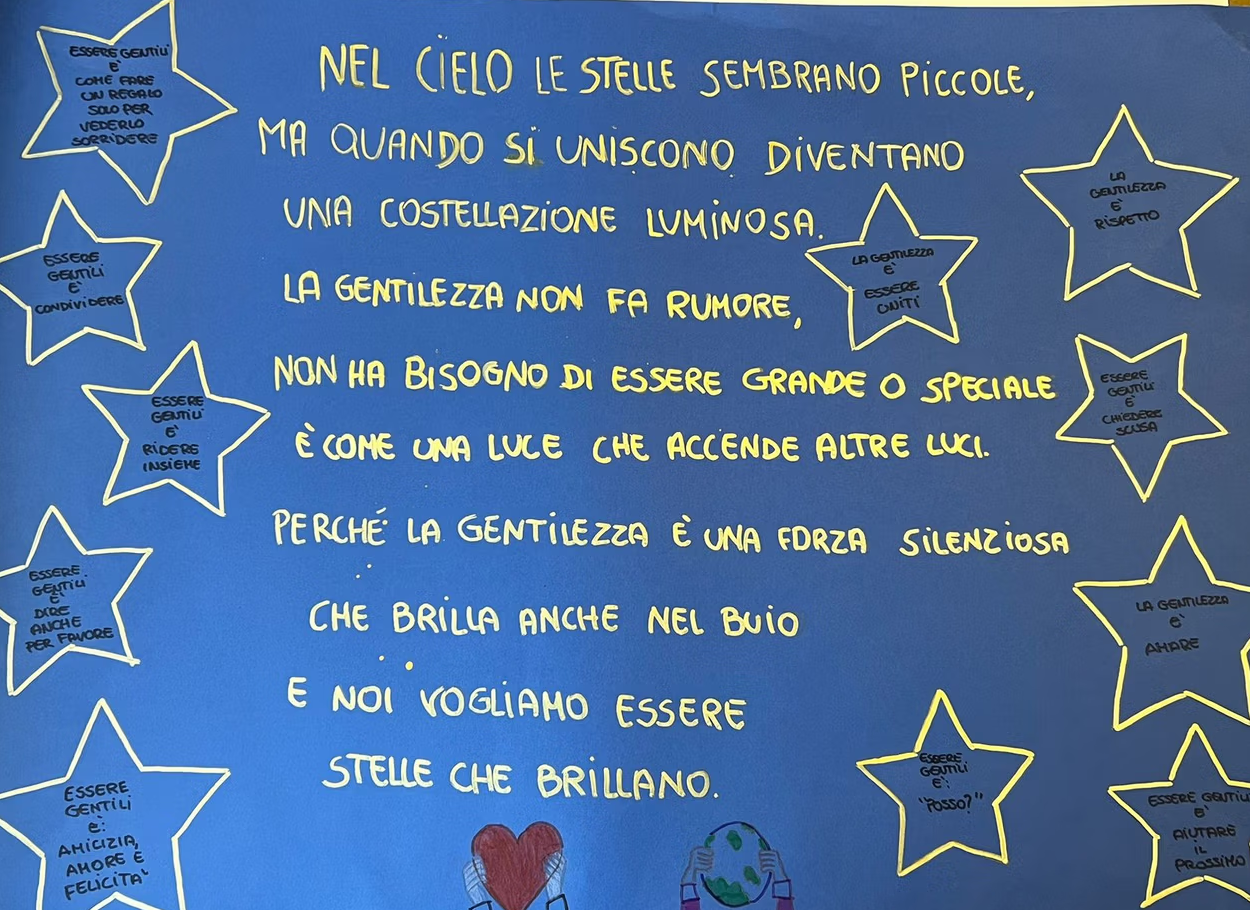 NEL CIELO LE STELLE SEMBRANO PICCOLE,
MA QUANDO SI UNISCONO DIVENTANO
UNA COSTELLAZIONE LUMINOSA.
LA GENTILEZZA NON FA RUMORE,
NON HA BISOGNO DI ESSERE GRANDE O SPECIALE
È COME UNA LUCE CHE ACCENDE ALTRE LUCI.
PERCHÉ LA GENTILEZZA È UNA FORZA SILENZIOSA
CHE BRILLA ANCHE NEL BUIO
E NOI VOGLIAMO ESSERE
STELLE CHE BRILLANO.
ESSERE GENTILI
E'
COME FARE
UN REGALO
SOLO PER
VEDERLO
SORRIDERE
ESSERE
GENTILI
E'
CONDIVIDERE
ESSERE
GENTILI
E'
RIDERE
INSIEME
ESSERE
GENTILI
E'
DIRE
ANCHE
PER FAVORE
ESSERE
GENTILI
E':
AMICIZIA,
AMORE E
FELICITA'
LA GENTILEZZA
E'
ESSERE
UNITI
LA
GENTILEZZA
E'
RISPETTO
ESSERE
GENTILI
E'
CHIEDERE
SCUSA
LA GENTILEZZA
E'
AMARE
ESSERE
GENTILI
E':
"POSSO?"
ESSERE GENTILI
E'
AIUTARE
IL
PROSSIMO